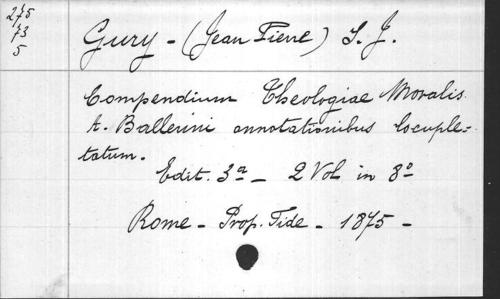 275
73
5
Gury - (Jean Pierre) S. J.
Compendium Theologiae Moralis.
A. Ballerini annotationibus locuple=
tatum.
Edit. 3ª - 2 Vol in 8º
Rome - Prop. Fide - 1875 -